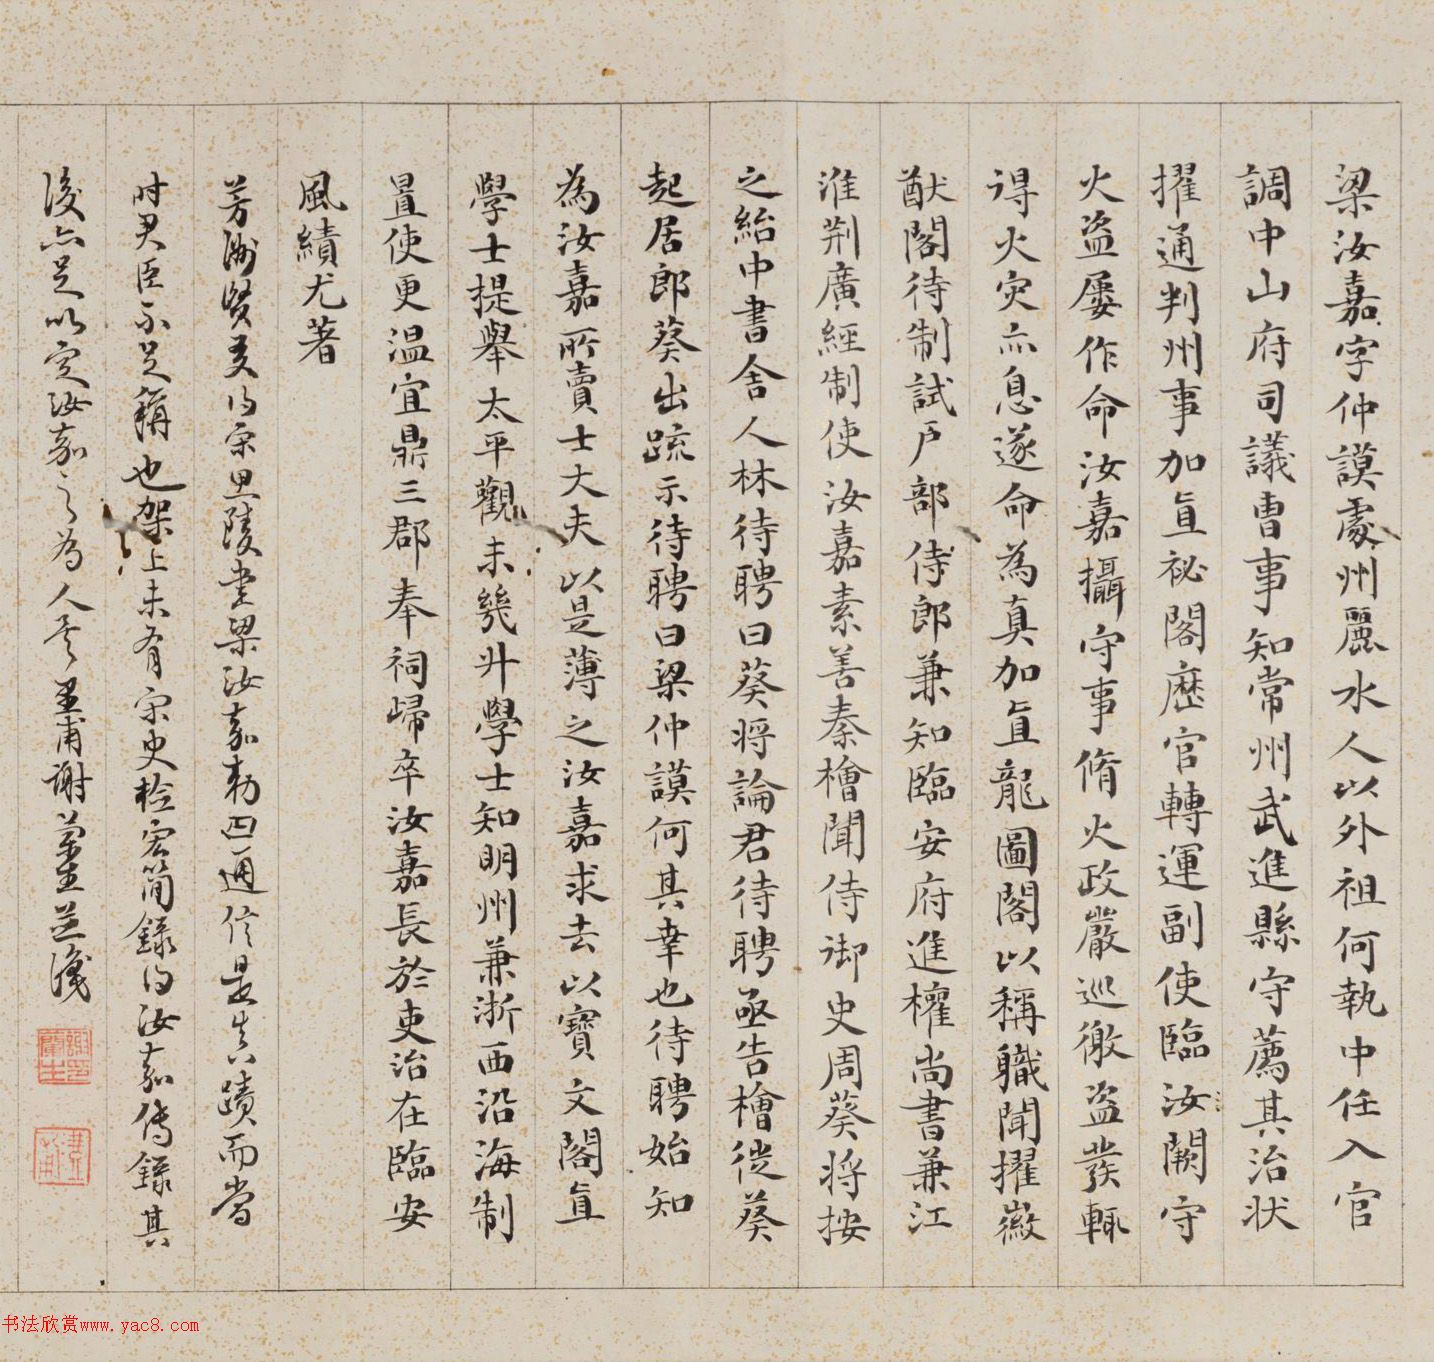 梁汝嘉字仲謨處州麗水人以外祖何執中任入官
調中山府司議曹事知常州武進縣守薦其治狀
擢通判州事加直祕閣歷官轉運副使臨汝闕守
火盜屢作命汝嘉攝守事脩火政嚴巡徼盜發輒
得火灾亦息遂命為真加直龍圖閣以稱職聞擢徽
猷閣待制試戶部侍郎兼知臨安府進權尚書兼江
淮荆廣經制使汝嘉素善秦檜聞侍御史周葵将按
之紿中書舍人林待聘曰葵将論君待聘亟告檜徙葵
起居郎葵出疏示待聘曰梁仲謨何其幸也待聘始知
為汝嘉所賣士大夫以是薄之汝嘉求去以寶文閣直
學士提舉太平觀未幾升學士知明州兼浙西沿海制
置使更温宜鼎三郡奉祠歸卒汝嘉長於吏治在臨安
風績尤著
芳洲賢友得宋思陵書梁汝嘉勅四通信是真蹟而當
時君臣不足稱也架上未有宋史檢宏簡錄得汝嘉傳錄其
後亦足以定汝嘉之為人矣 里甫謝蘭生並識
謝印蘭生
里甫
书法欣赏www.yac8.com